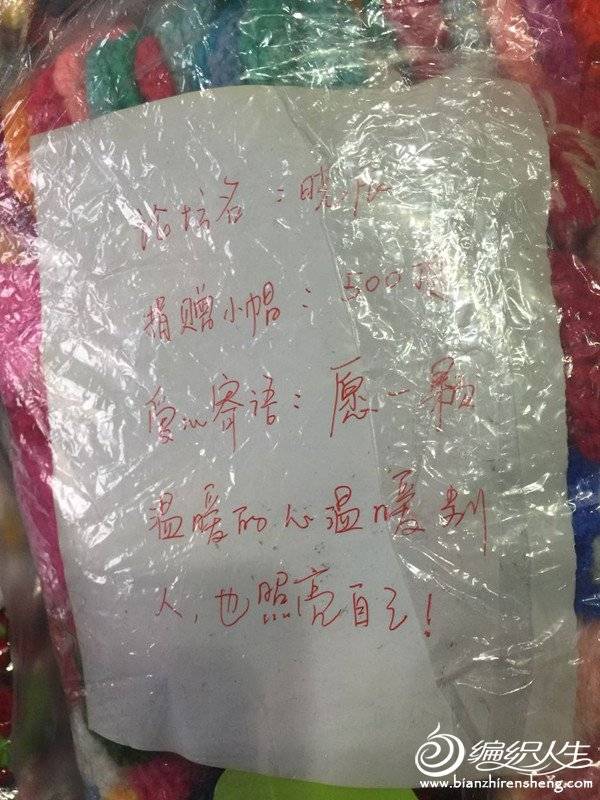 论坛名：晓
捐赠小帽：500顶
爱心寄语：愿一颗
温暖的心温暖别
人，也照亮自己！
编织人生
www.bianzhirensheng.com